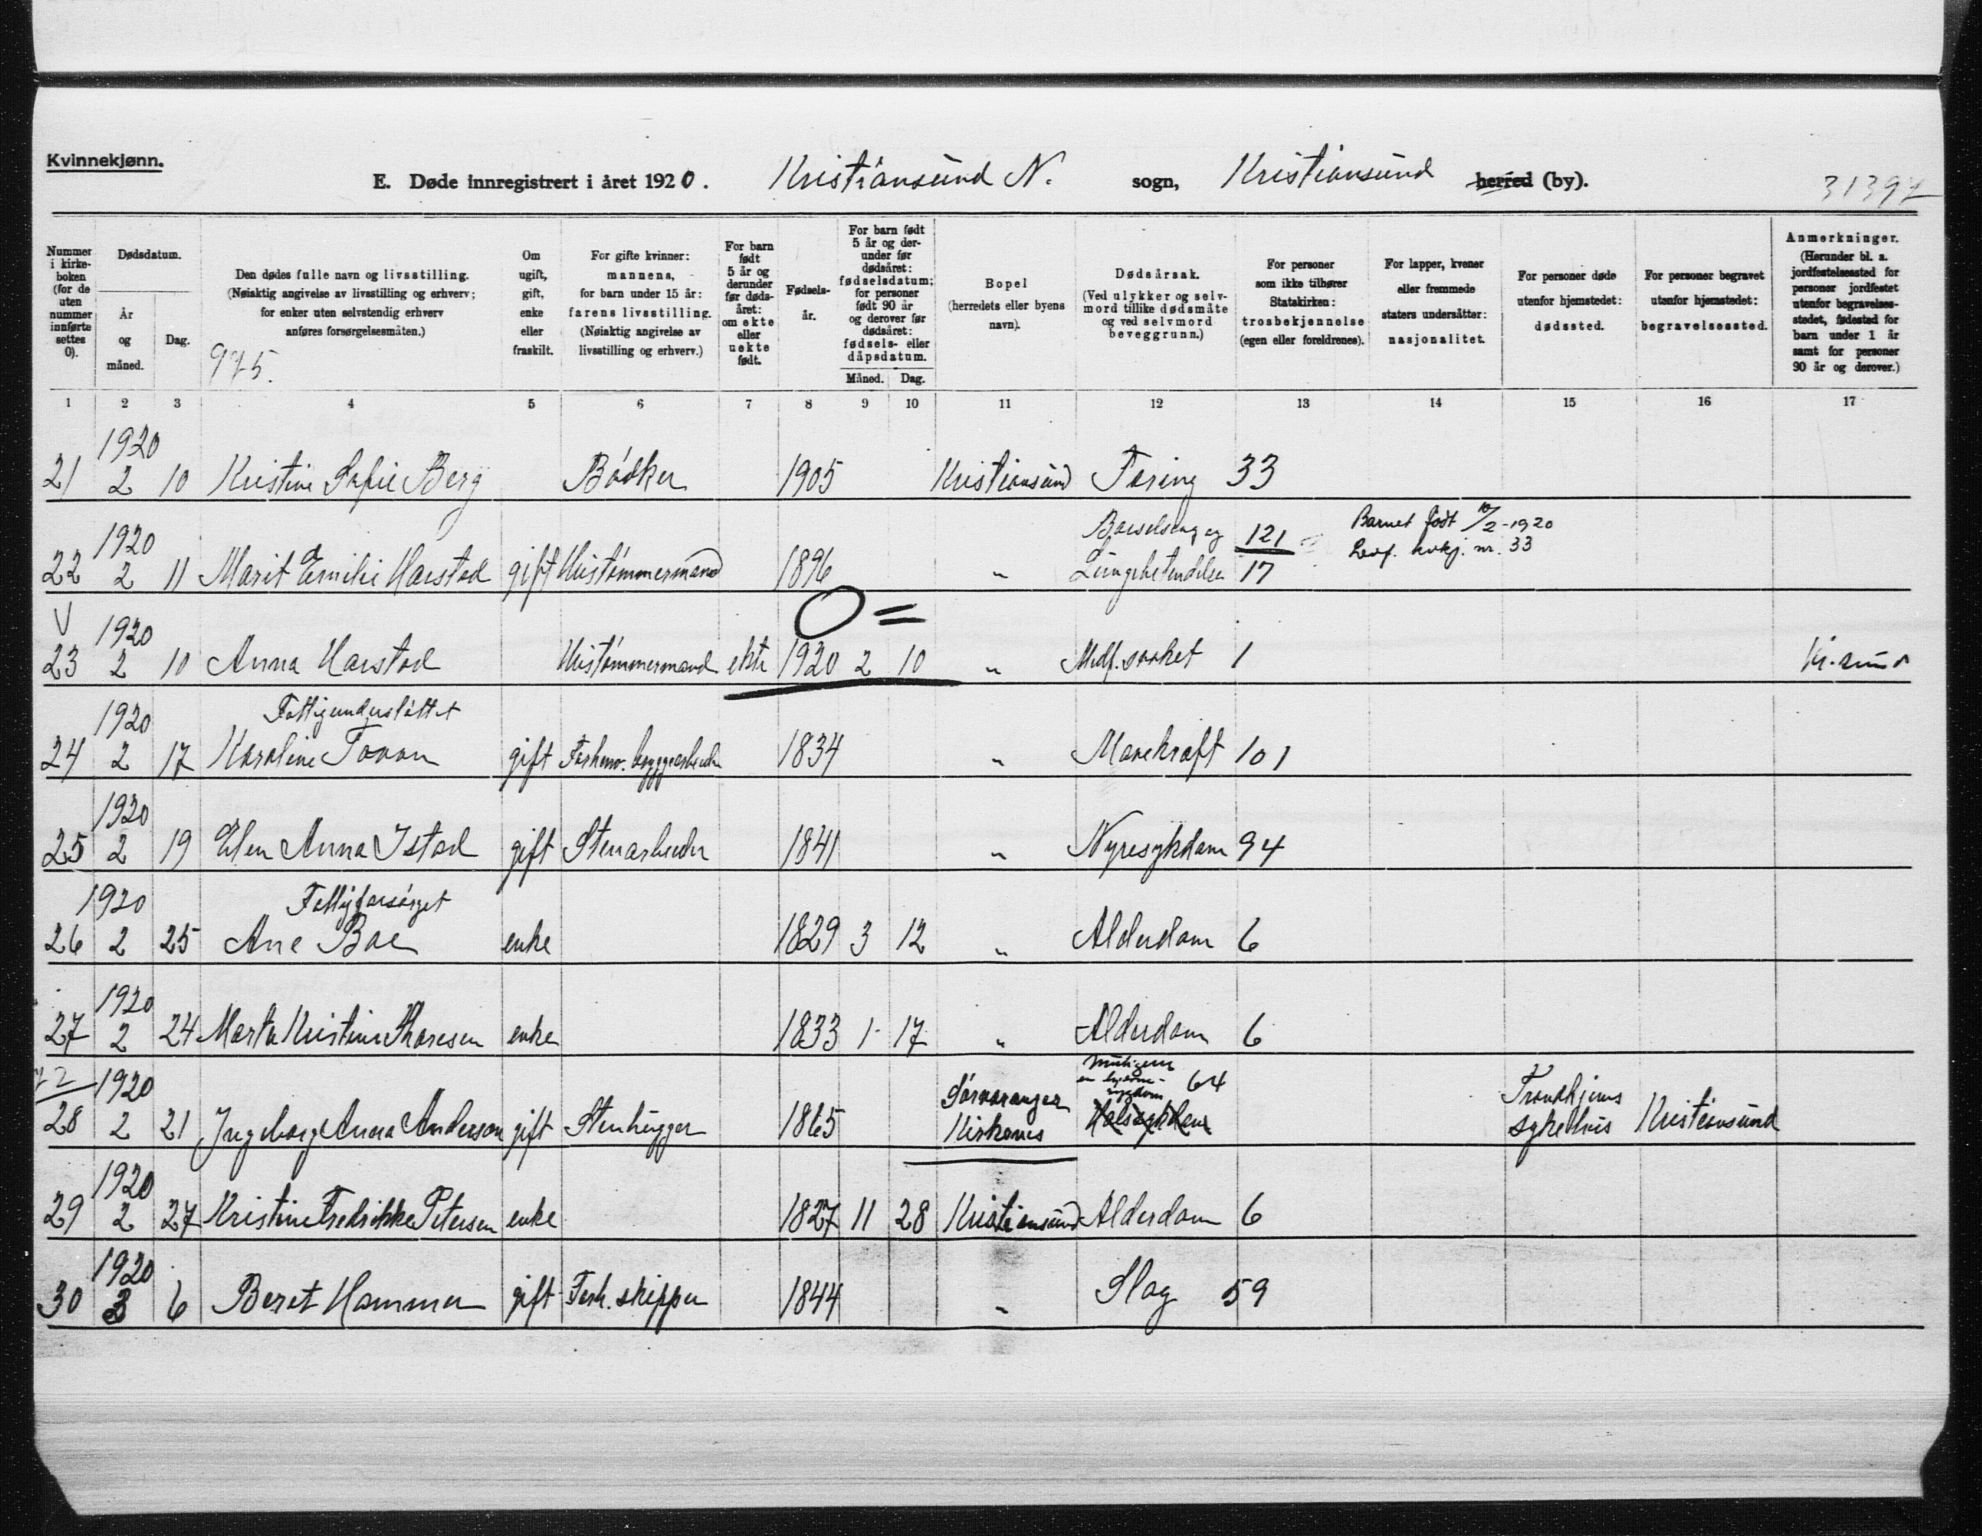 Kvinnekjønn.
E. Døde innregistrert i året 1920. Kristiansund N. sogn, Kristiansund herred (by). 31397
Nummer i kirkeboken (for de uten nummer innførte settes 0).
Dødsdatum.
År og måned.
Dag.
Den dødes fulle navn og livsstilling.
(Nøiaktig angivelse av livsstilling og erhverv; for enker uten selvstendig erhverv anføres forsørgelsesmåten.)
975.
Om ugift, gift, enke eller fraskilt.
For gifte kvinner: mannens, for barn under 15 år: farens livsstilling. (Nøiaktig angivelse av livsstilling og erhverv.)
For barn født 5 år og derunder før døds-året: om ekte eller uekte født.
Fødsels-år.
For barn født 5 år og der-under før dødsåret: fødselsdatum; for personer født 90 år og derover før dødsåret: fødsels- eller dåpsdatum.
Måned. Dag.
Bopel (herredets eller byens navn).
Dødsårsak. (Ved ulykker og selvmord tillike dødsmåte og ved selvmord beveggrunn.)
For personer som ikke tilhører Statskirken: trosbekjennelse (egen eller foreldrenes).
For lapper, kvener eller fremmede staters undersåtter: nasjonalitet.
For personer døde utenfor hjemstedet: dødssted.
For personer begravet utenfor hjemstedet: begravelsessted.
Anmerkninger. (Herunder bl. a. jordfestelsessted for personer jordfestet utenfor begravelsesstedet, fødested for barn under 1 år samt for personer 90 år og derover.)
1 2 3 4 5 6 7 8 9 10 11 12 13 14 15 16 17
1920
21 2 10 Kristine Sofie Berg Bödker 1905 Kristiansund Tæring 33
1920 Barselseng og 121 Barnet født 10/2-1920
22 2 11 Marit Emilie Harstad gift Hustömmermand 1896 " Lungebetendelse 17 Levf. kvkj. nr. 33
V 1920 O =
23 2 10 Anna Harstad Hustömmermand ekte 1920 2 10 " Medf. svaket 1 Kr.sund
1920 Fattigunderstöttet
24 2 17 Karoline gift Forhenv. byggearbeider 1834 " Mavekræft 101
1920
25 2 19 Elen Anna Istad gift Stenarbeider 1841 " Nyresykdom 94
1920 Fattigforsörget
26 2 25 Ane Boe enke 1829 3 12 " Alderdom 6
1920
27 2 24 Marta Kristine Thoresen enke 1833 1 17 " Alderdom 6
1920 Sörvaranger 64 Trondhjems
28 2 21 Ingeborg Anna Anderson gift Stenhugger 1865 Kirkenes Halssykdom sykehus Kristiansund
1920
29 2 27 Kristine Fredrikke Petersen enke 1827 11 28 Kristiansund Alderdom 6
1920
30 3 6 Beret Hammer gift Forh. skipper 1844 " Slag 59